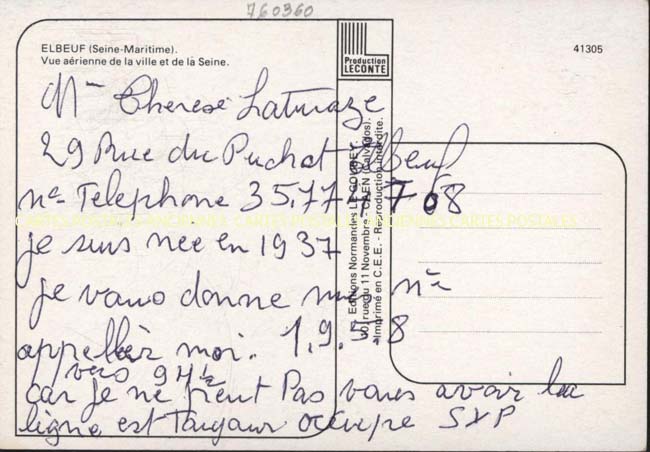 760360
ELBEUF (Seine-Maritime).
Vue aérienne de la ville et de la Seine.
Production
LECONTE
41305
Mme Therese Laturaze
29 Rue du Puchot Elbeuf
no Telephone 35.77 7 68
je suis nee en 1937
je vous donne mes no
appeller moi. 1.9.5 8
vers 9H ½
car je ne peut Pas vous avoir la
ligne est Toujour occupe SVP
Editions Normandes
rue du 11 Novembre - CAEN (Calvados).
Imprimé en C.E.E. - Reproduction interdite.
CARTES POSTALES ANCIENNES CARTES POSTALES ANCIENNES CARTES POSTALES